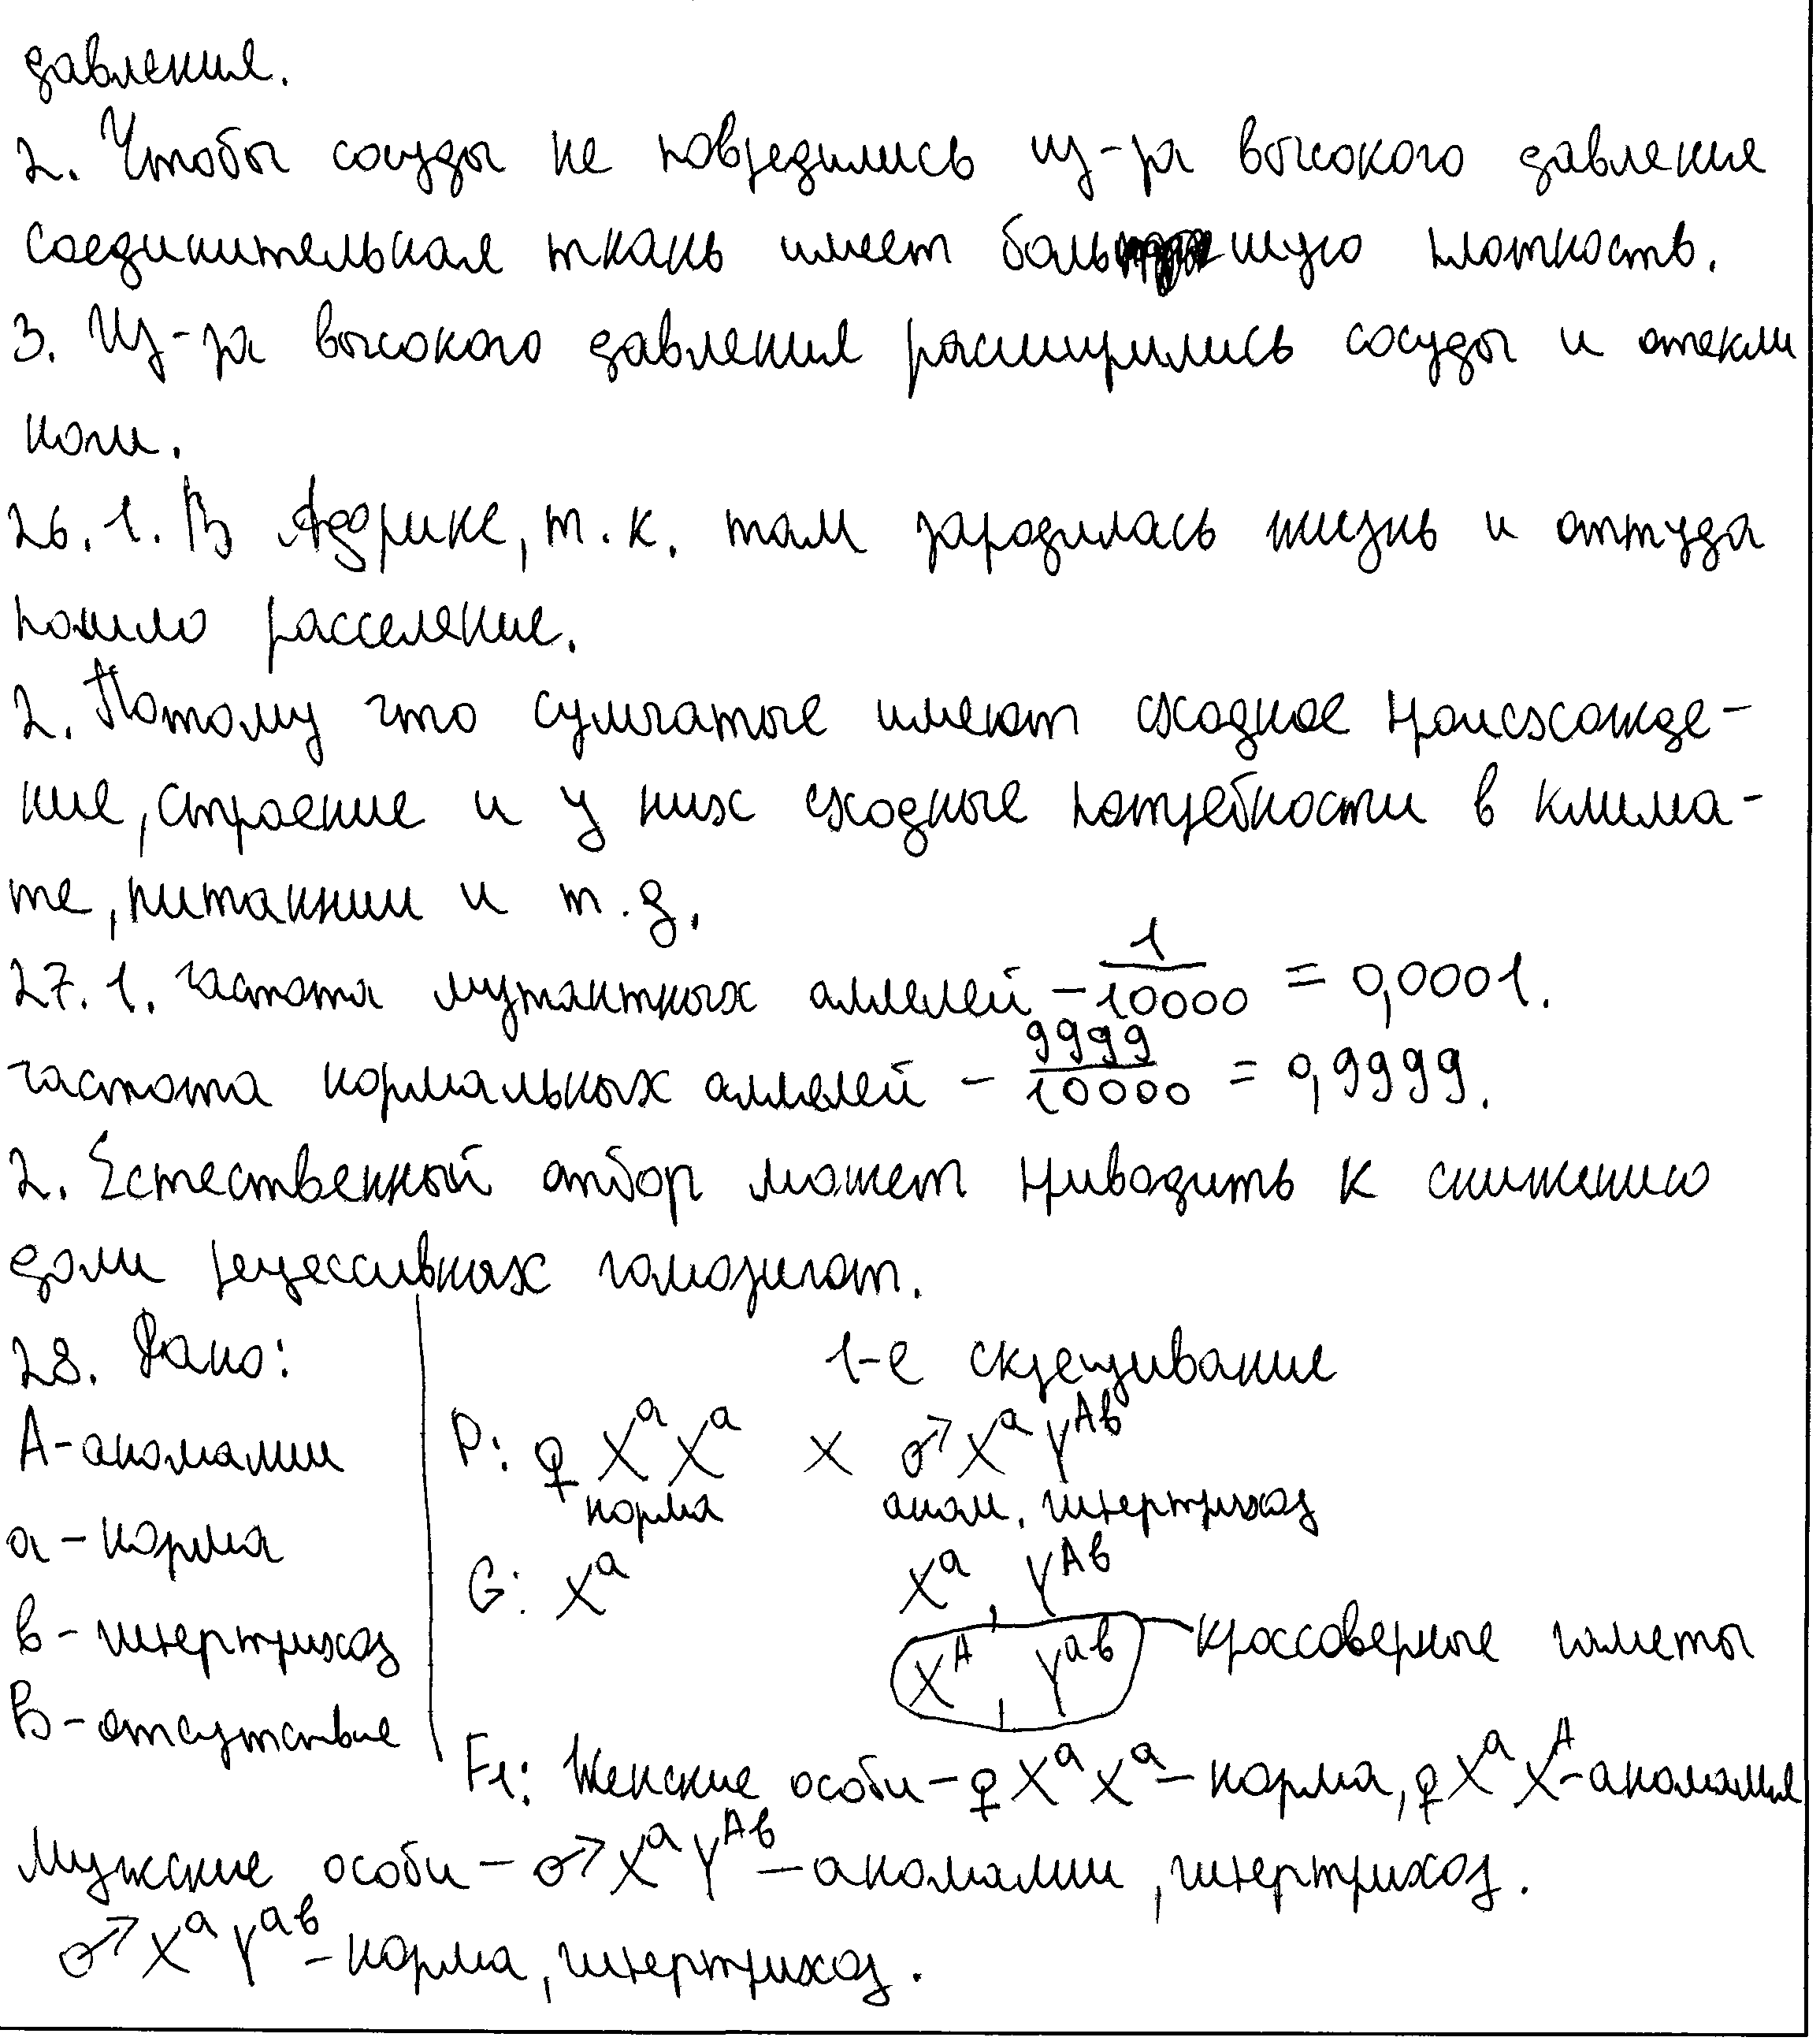 давления.
2. Чтобы сосуды не повредились из-за высокого давления
соединительная ткань имеет большую плотность.
3. Из-за высокого давления расширились сосуды и отекли
ноги.
26. 1. В Африке, т.к. там зародилась жизнь и оттуда
пошло расселение.
2. Потому что сумчатые имеют сходное происхожде-
ние, строение и у них сходные потребности в клима-
те, питаннии и т.д.
27. 1. Частота мутантных аллелей – 1/10000 = 0,0001.
частота нормальных аллелей – 9999/10000 = 0,9999.
2. Естественный отбор может приводить к снижению
доли рецессивных гомозигот.
28. Дано:
А-аномалии
а-норма
в-гипертрихоз
В-отсутствие
1-е скрещивание
P: ♀ XᵃXᵃ x ♂ XᵃYᴬᵇ
норма аном, гипертрихоз
G: Xᵃ Xᵃ, Yᴬᵇ
Xᴬ, Yᵃᵇ кроссоверные гаметы
F₁: Женские особи – ♀ XᵃXᵃ – норма, ♀ XᵃXᴬ – аномалия
Мужские особи – ♂ XᵃYᴬᵇ – аномалии, гипертрихоз.
♂ XᵃYᵃᵇ – норма, гипертрихоз.